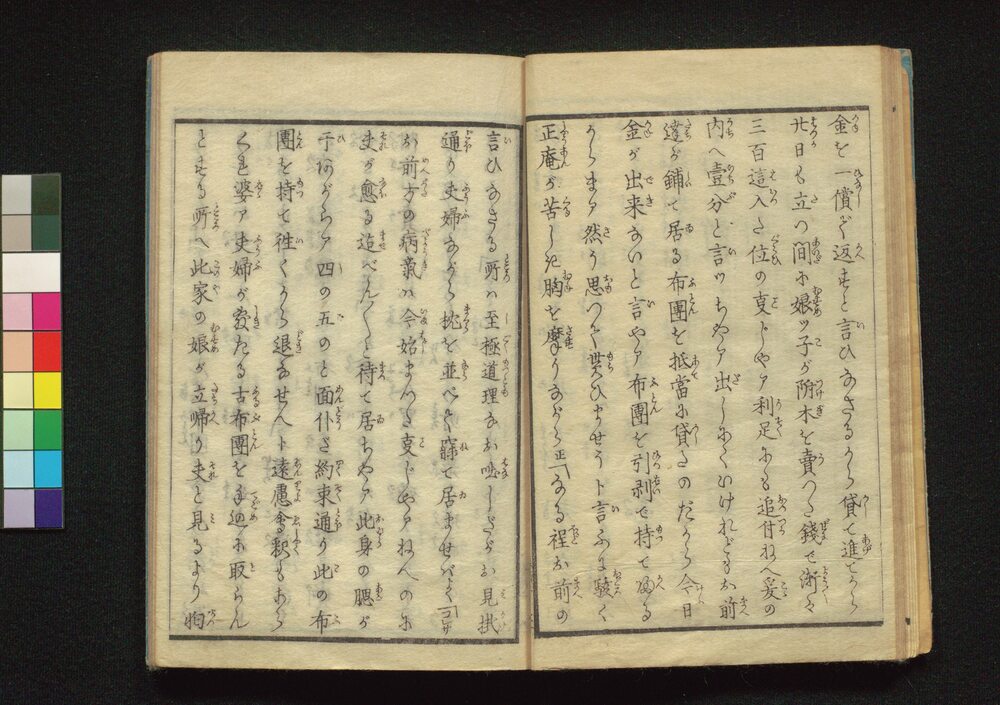 金を一償ぎ返すと言ひなさるから貸て進てから
廿日も立つ間に娘ッ子が附木を賣つた錢で漸々
三百這入た位の㕝じやア利足にも追付ねへ爰の
内へ壹分と言ッちやア出しにくいけれどもお前
達が鋪て居る布團を抵當に貸たのだから今日
金が出来ないと言やア布團を引剥で持て歸る
からまア然う思つて貰ひませうト言ふに駭く
正庵が苦しき胸を摩りながら正「なる程お前の
言ひなさる所ハ至極道理なお咄しだがお見掛
通り夫婦ながら枕を並べて寐て居ませバ「コサ
お前方の病氣ハ今始まつた㕝じやアねへのに
夫が愈る迄べん〳〵と待て居ちやア此身の腮が
干あがらア四の五のと面倒だ約束通り此の布
團を持て往くから退なせんト遠慮會釈もあら
くれ婆ア夫婦が敷たる古布團を手込に取らん
とする所へ此家の娘が立歸り夫と見るより恟